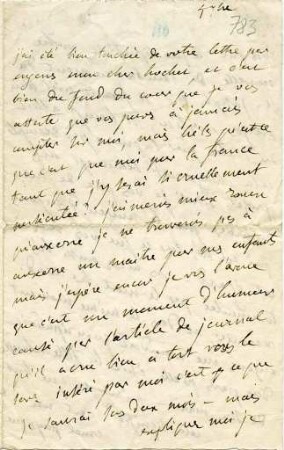 9bre
783
j'ai été bien touchée de votre lettre par
mon cher hochet, et c'est
bien du fond du cœur que je vs
atteste que vs pvés à jamais
compter sur moi, mais hélas qu'est ce
que c'est que moi par la france
tant que j'y serai si cruellement
persécutée? j'aimerais mieux rouen
qu'auxerre je ne trouverais pas à
auxerre un maître par mes enfants
mais j'espère encor je vs l'avoue
que c'est un moment d'humeur
causé par l'article de journal
qu'il a cru bien à tort
inséré par moi c'est ce que
je saurai ds deux mois – mais
explique moi je